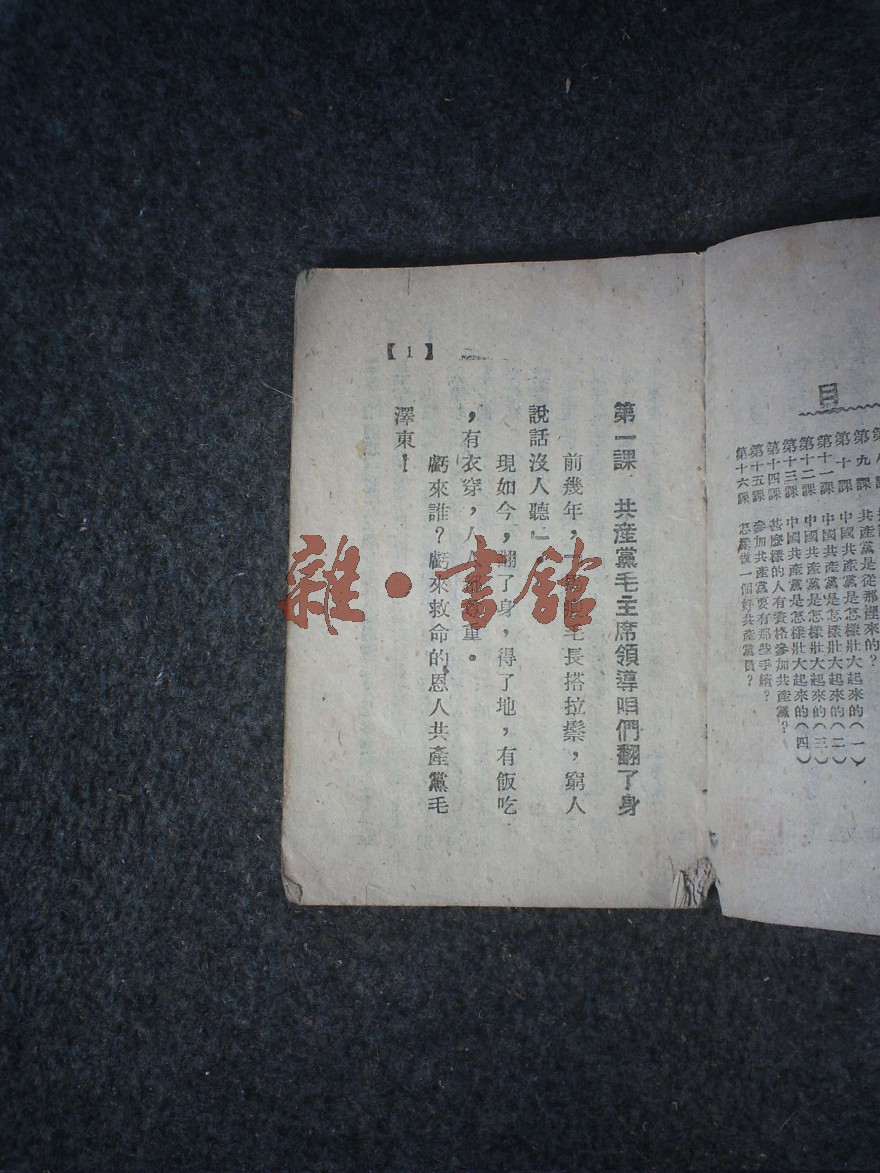 目
第九課　共產黨是從那裡來的?
第十課　中國共產黨是怎樣壯大起來的(一)
第十一課　中國共產黨是怎樣壯大起來的(二)
第十二課　中國共產黨是怎樣壯大起來的(三)
第十三課　中國共產黨是怎樣壯大起來的(四)
第十四課　甚麼樣的人有資格參加共產黨?
第十五課　參加共產黨要有那些手續?
第十六課　怎樣做一個好共產黨員?
第一課　共產黨毛主席領導咱們翻了身
前幾年,毛長搭拉鬃,窮人
說話沒人聽」
現如今,翻了身,得了地,有飯吃
,有衣穿,人人重。
虧來誰?虧來救命的恩人共產黨毛
澤東!
【1】
雜·書館